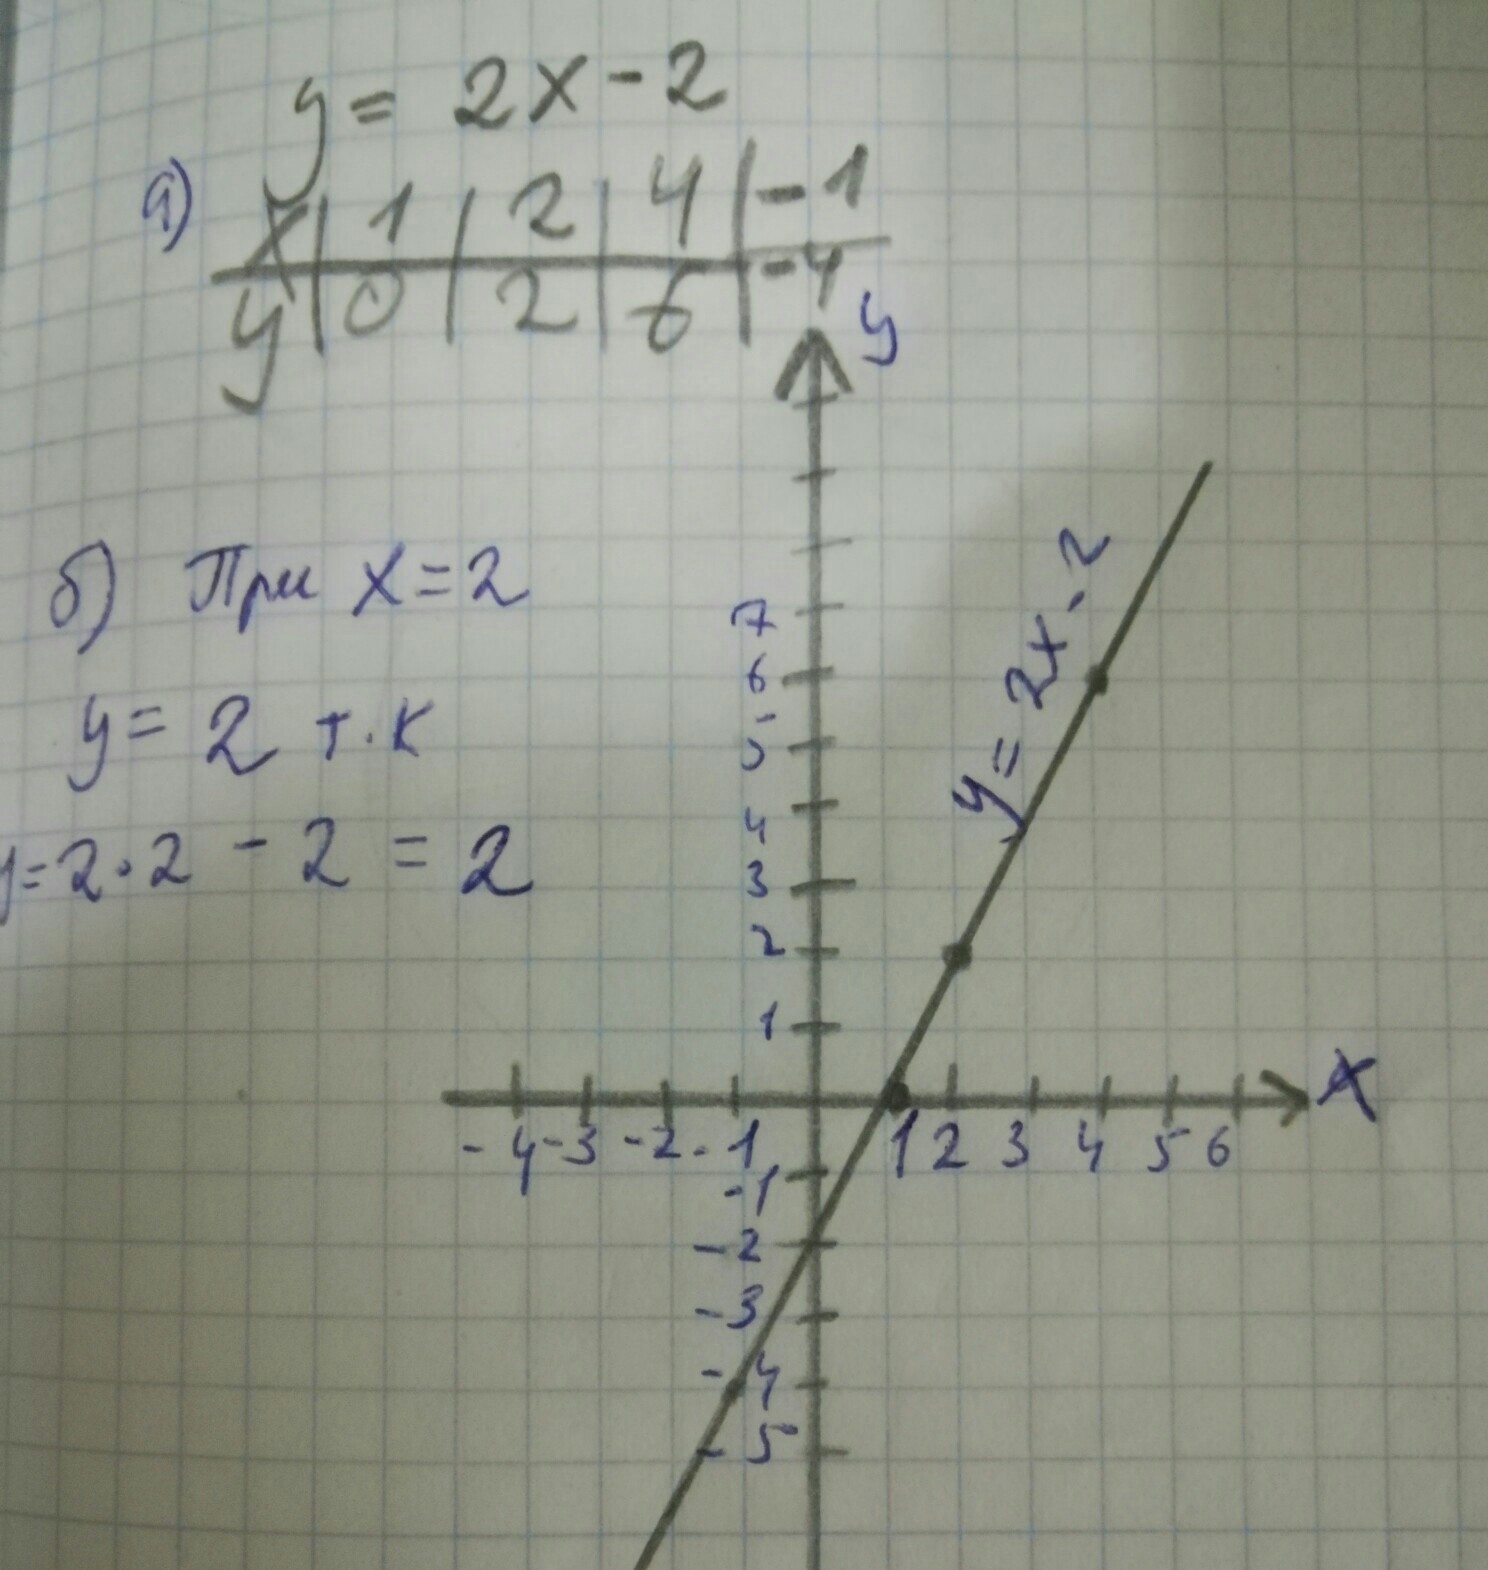 y = 2x - 2
а) x | 1 | 2 | 4 | -1
y | 0 | 2 | 6 | -4
y
б) При x = 2
y = 2 т.к
y = 2 · 2 - 2 = 2
y = 2x - 2
7
6
5
4
3
2
1
x
-4 -3 -2 -1 1 2 3 4 5 6
-1
-2
-3
-4
-5